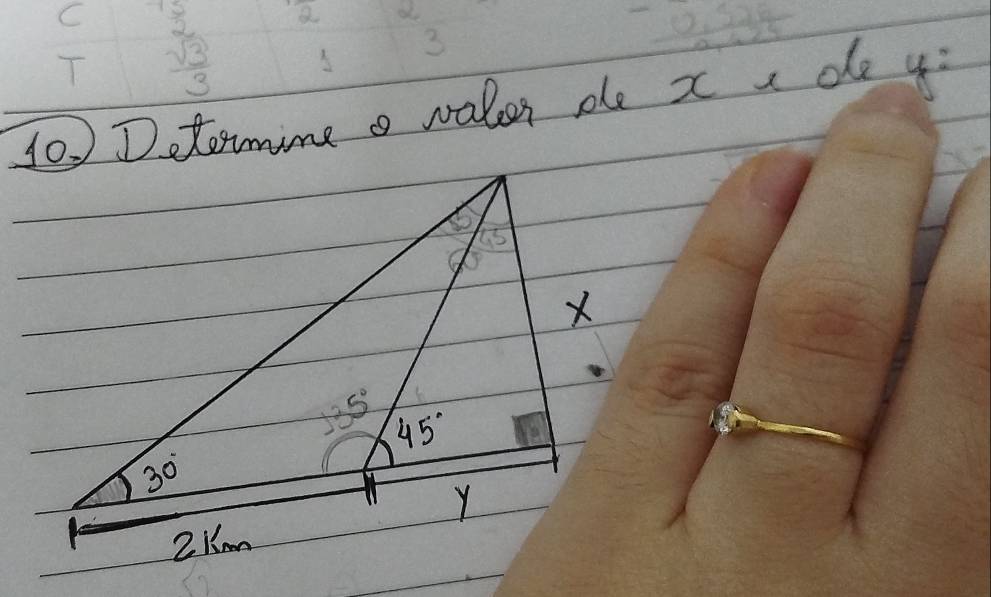 C √2/2 √2/2
T √3/3 1 √3
10.) Determine o valor de x e de y:
15° 45
60
x
135°
45°
30°
y
2 Km